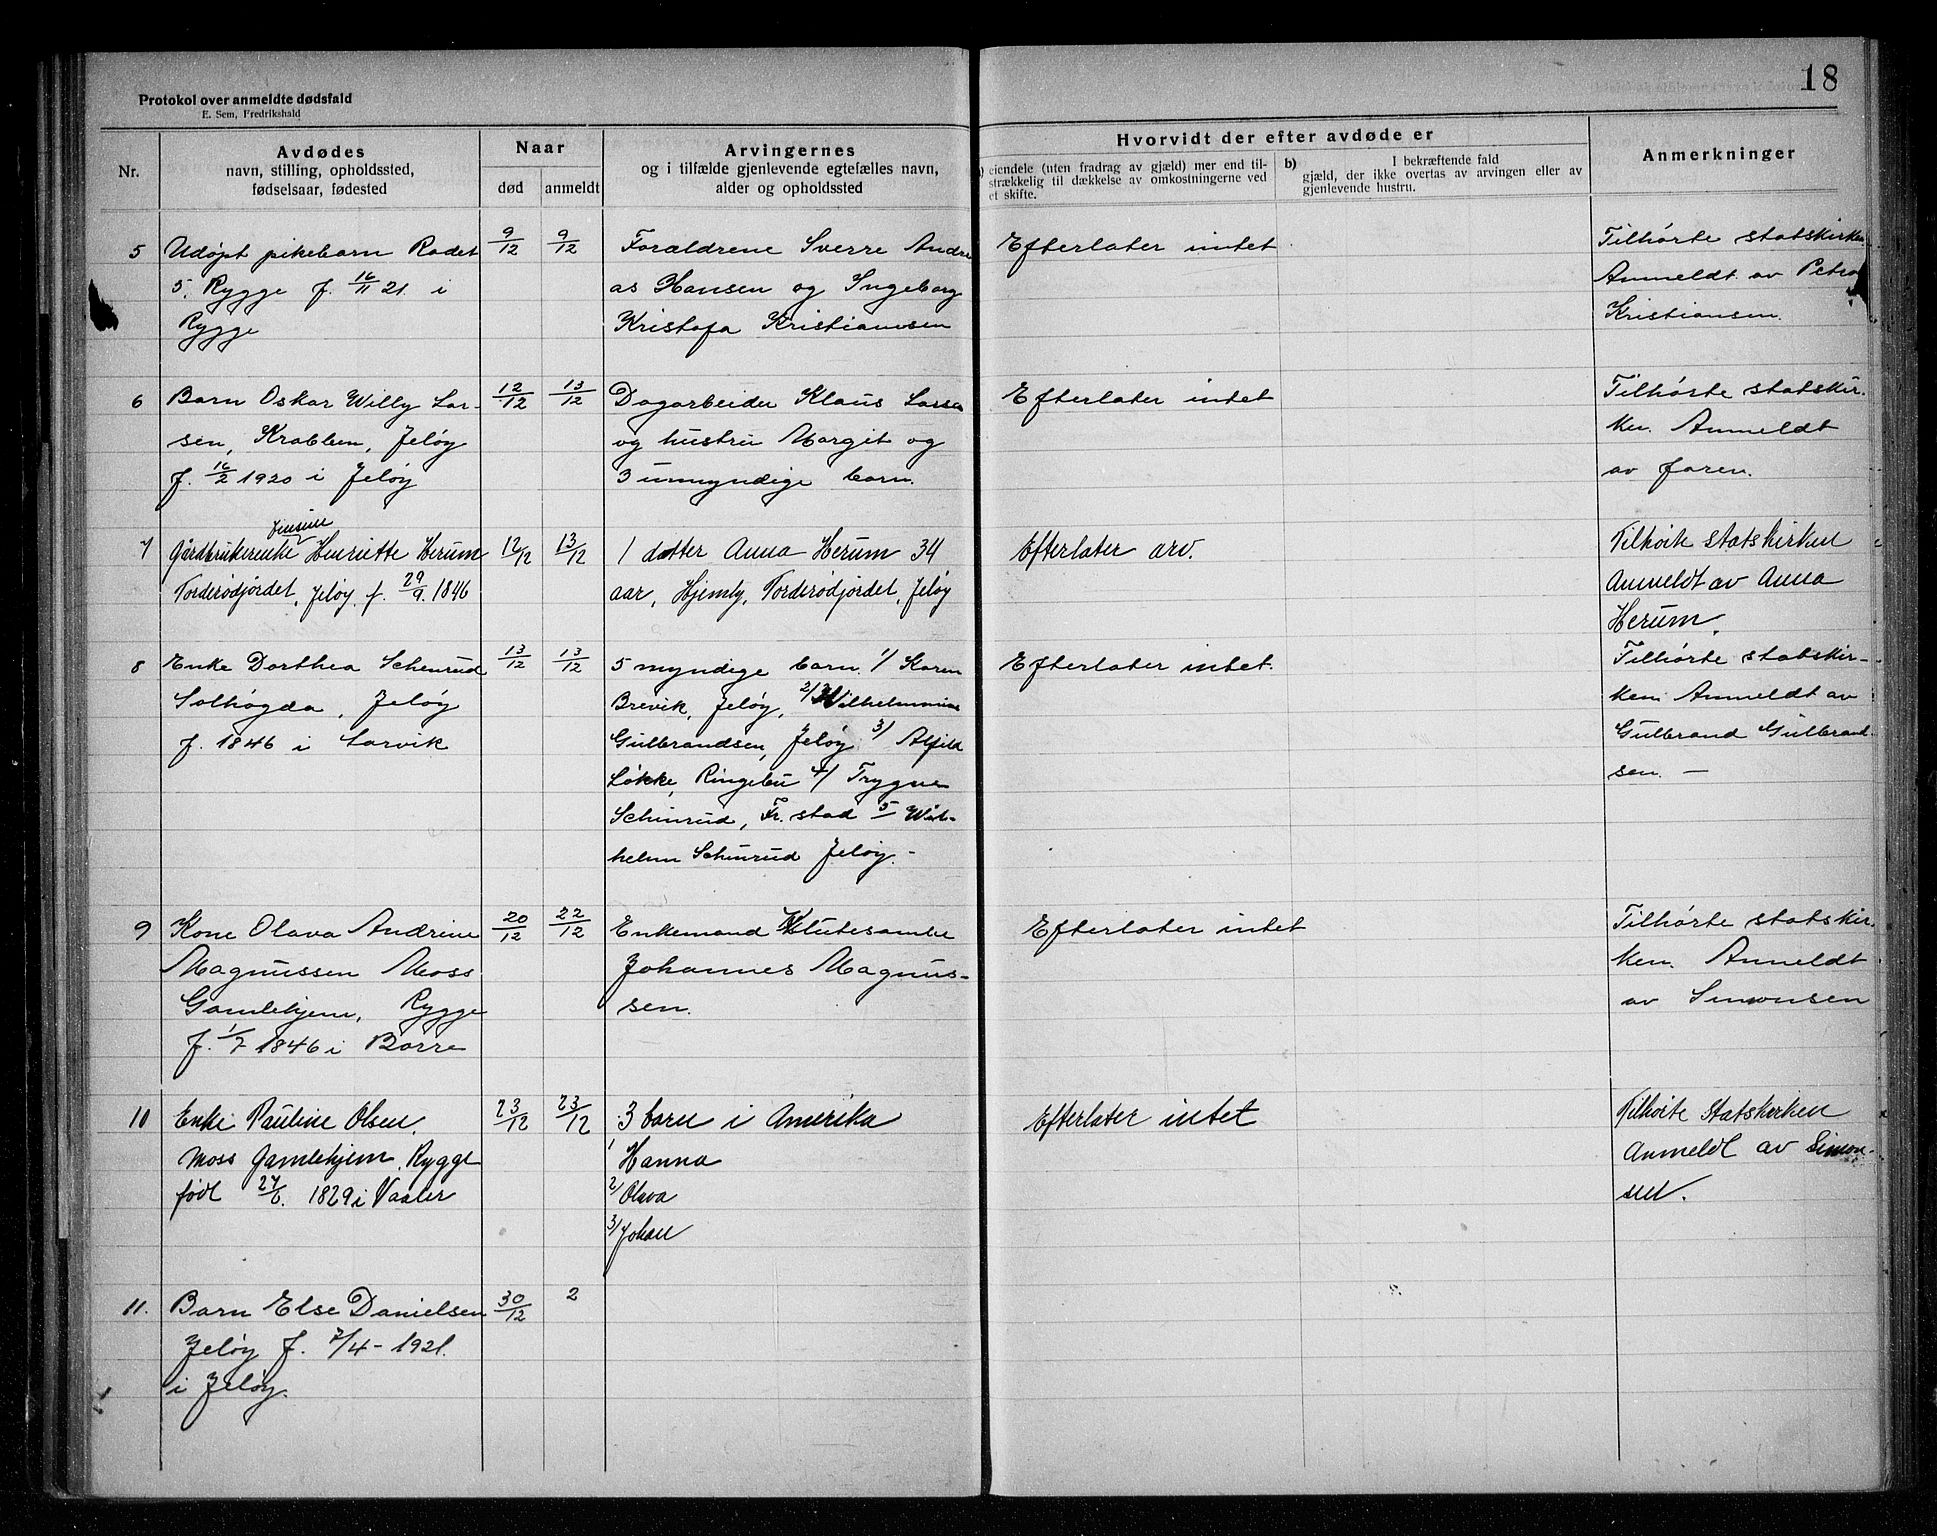 18
Protokol over anmeldte dødsfald
E. Sem, Fredrikshald
Nr.
Avdødes
navn, stilling, opholdssted,
fødselsaar, fødested
Naar
død
anmeldt
Arvingernes
og i tilfælde gjenlevende egtefælles navn,
alder og opholdssted
Hvorvidt der efter avdøde er
eiendele (uten fradrag av gjæld) mer end til-
strækkelig til dækkelse av omkostningerne ved
et skifte.
b)
I bekræftende fald
gjæld, der ikke overtas av arvingen eller av
gjenlevende hustru.
Anmerkninger
5
Udøpt pikebarn Rødet
5, Rygge f. 16/11 21. i
Rygge
9/12
9/12
Forældrene Sverre Andre
as Hansen og Ingeborg
Kristofa Kristiansen
Efterlater intet
Tilhørte statskirken
Anmeldt av Petra
Kristiansen.
6
Barn Oskar Willy Lar-
sen, Krabben, Jeløy
f. 16/2 1920 i Jeløy
12/12
13/12
Dagarbeider Klaus Larsen
og hustru Margit og
3 umyndige barn.
Efterlater intet
Tilhørte statskir.
ken. Anmeldt
av faren.
7
Jensine
Gårdbrukerenke Henriette Herum
Torderødjordet, Jeløy. f. 29/9. 1846
12/12
13/12
1 datter Anna Herum 34
aar, Hjemly, Torderødjordet, Jeløy
Efterlater arv.
Tilhørte statskirken
Anmeldt av Anna
Herum.
8
Enke Dorthea Schinrud
Solhøgda, Jeløy
f. 1846 i Larvik
13/12
13/12
5 myndige barn. 1/ Karen
Brevik, Jeløy, 2/ Wilhelmmine
Gulbrandsen, Jeløy 3/ Alfild
Løkke, Ringebu 4/ Trygve
Schinrud, Fr. stad 5 Wil-
helm Schinrud Jeløy. -
Efterlater intet.
Tilhørte statskir-
ken. Anmeldt av
Gulbrand Gulbrand-
sen. —
9
Kone Olava Andrine
Magnussen Moss
Gamlehjem, Rygge
f. 1/7 1846 i Borre
20/12
22/12
Enkemand
Johannes Magnus-
sen.
Efterlater intet
Tilhørte statskir.
ken. Anmeldt
av Simonsen
10
Enke Pauline Olsen.
Moss Gamlehjem, Rygge
født 27/6. 1829 i Vaaler
23/12
23/12
3 barn i Amerika
1 Hanna
2/ Olava
3/ Johan
Efterlater intet
Tilhørte Statskirken
Anmeldt av Simon-
sen.
11.
Barn Else Danielsen
Jeløy f. 7/4 - 1921.
i Jeløy.
30/12
2